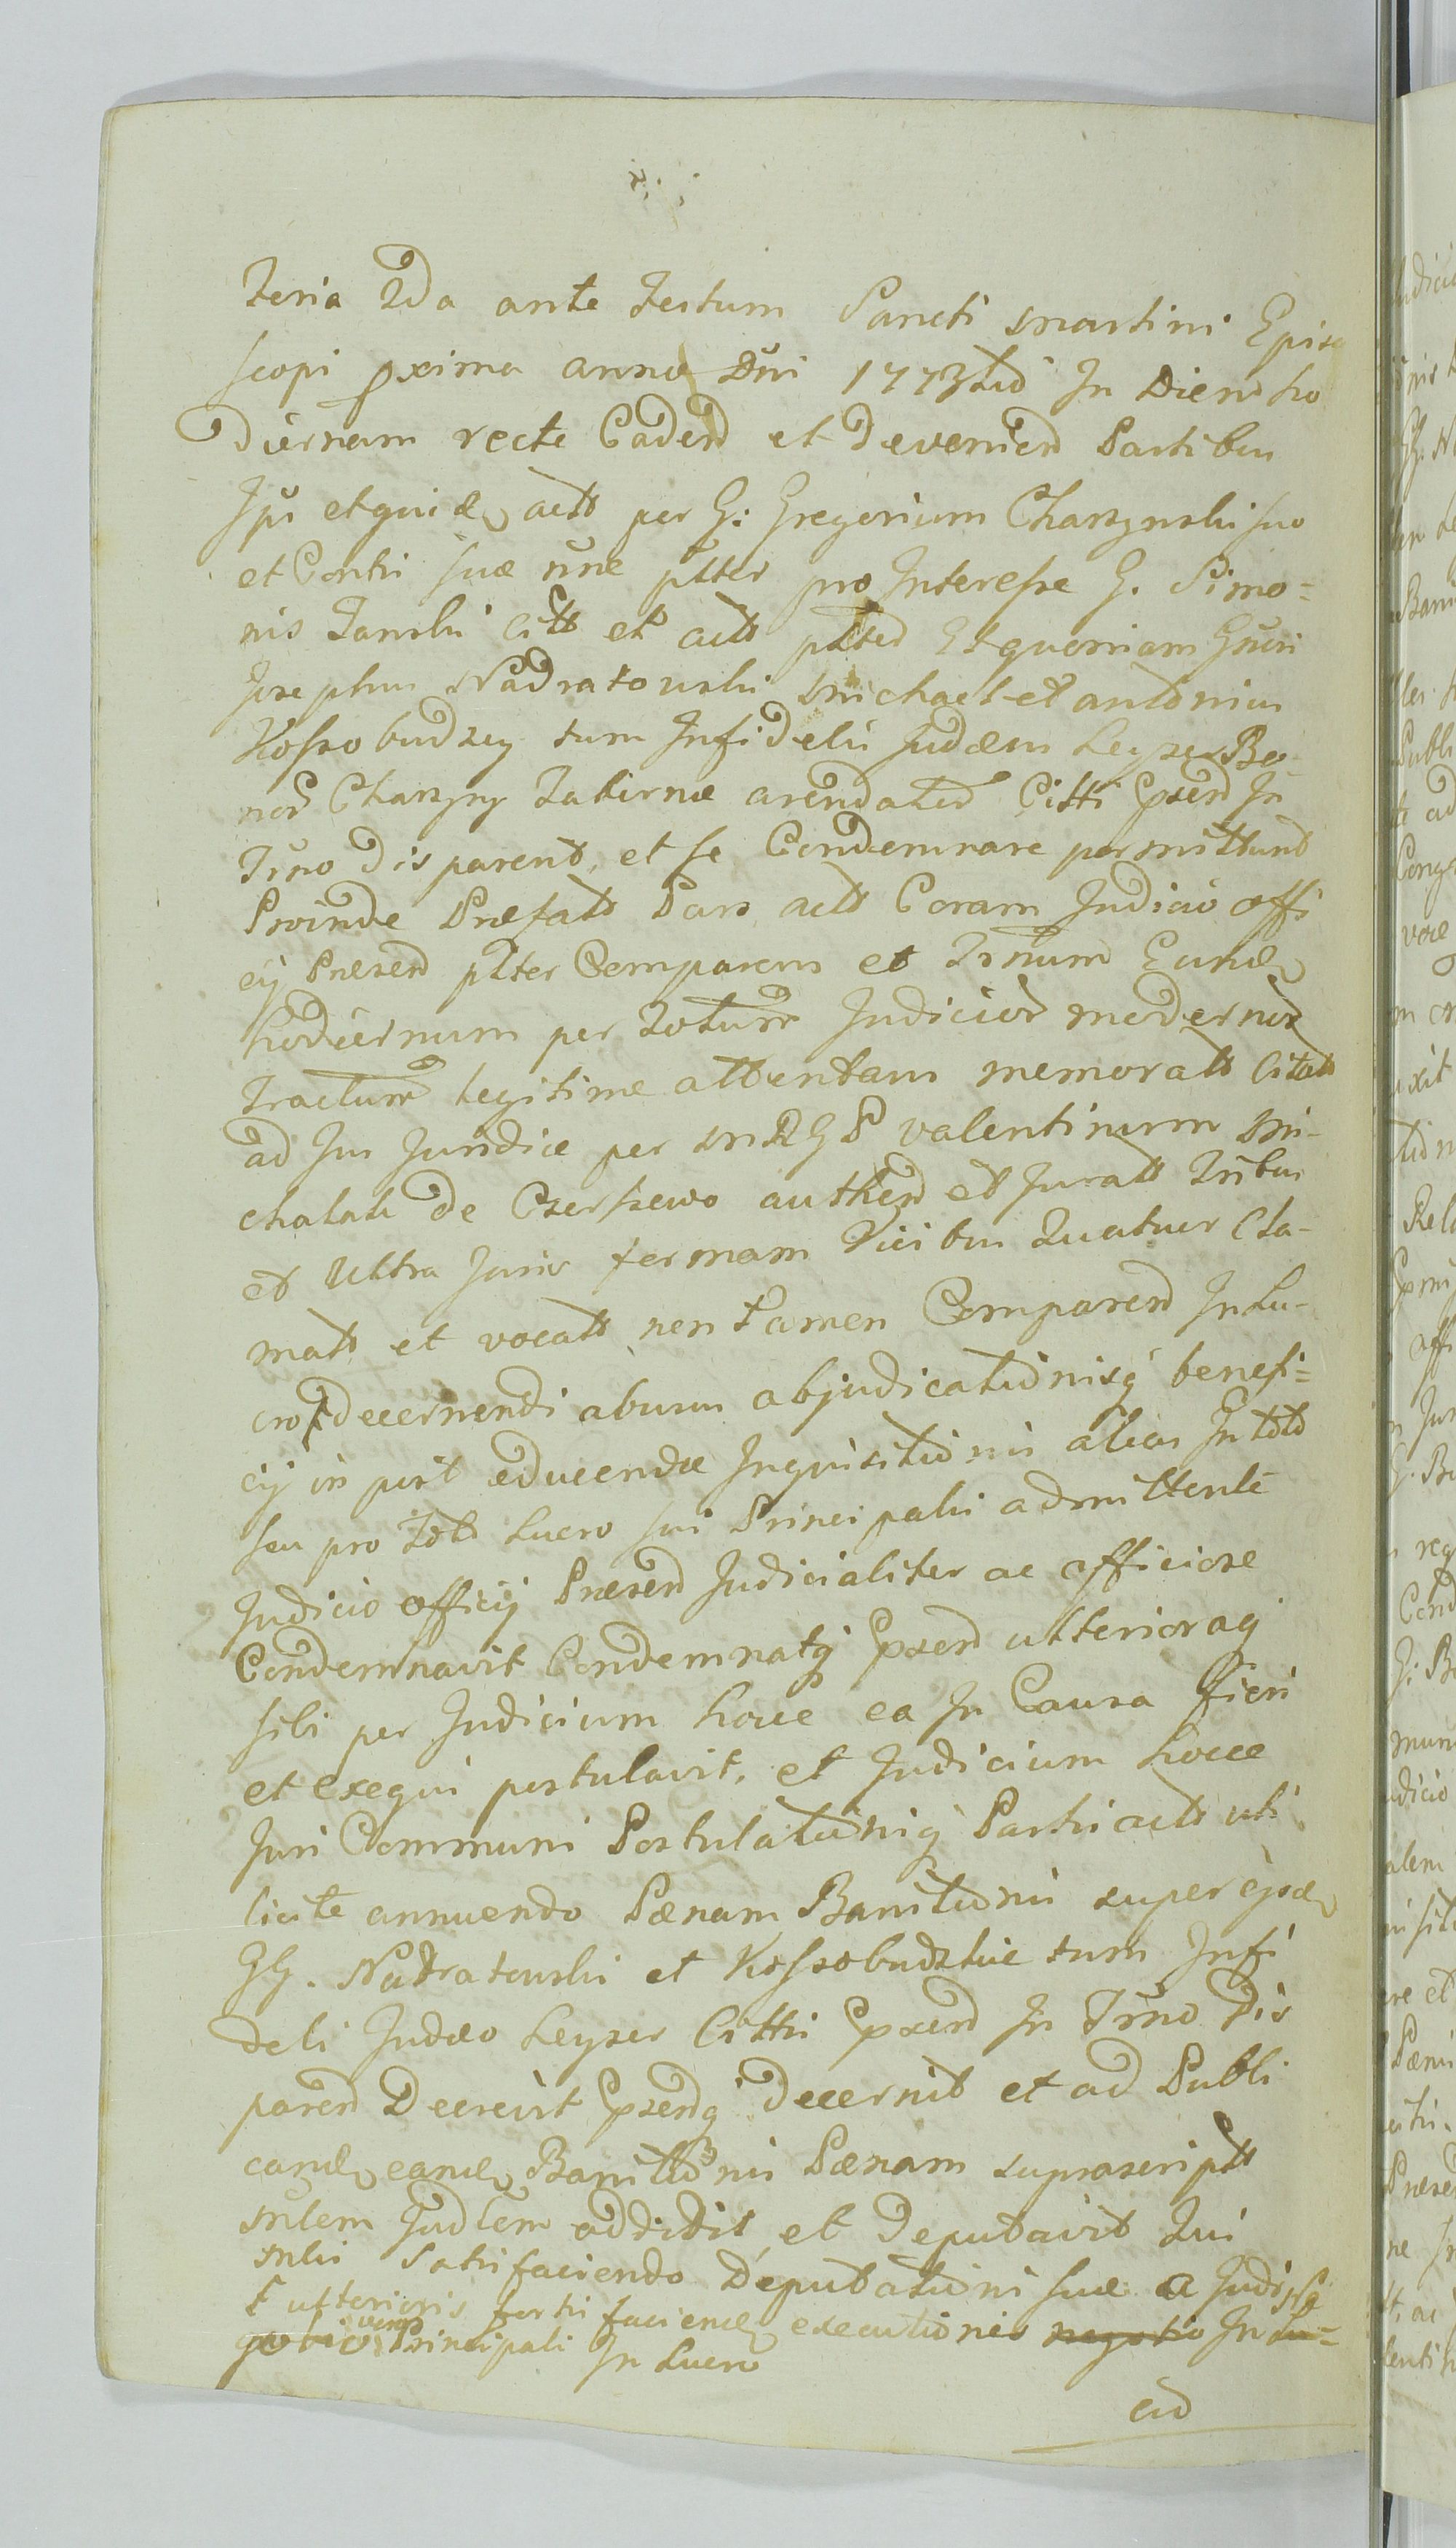 Feria 2da ante Festum Sancti Martini Epis
scopi pxima anno Dni 1773tio In Diem ho
diernam recte Caden et Devenien Partibus
Ips et quidē actt per G: Gregorium Charzynski suo
et Conthi suæ nne ptter pro Interesse G. Simo=
nis Tanski citt et actt ptter Et quoniam Gnri
Josephus Nadratowski Michael et Antonius
Kossobudzcy tum Infidelis Judæus Leyser Bo-
nor Charzyny Tabernæ arendator Citti Exsen In
Trno disparent, et se Condemnare permittunt
Proinde Præfatt Pars actt Coram Judicio offi
cij Præsen ptter Comparens et Trnum Eundē
hodiernum per Totum Judicior modernor
Tractum legitime attentans memoratt Citatt
ad Jus Juridice per MRGP Valentinum Mi-
chalak de Czersžewo authen et Juratt Tribus
et Ultra Juris formam Vicibus Quatuor Cla-
matt et vocatt non tamen Comparen In Lu-
cro decernendi abusus abjudicationisq benefi=
cij in post educendæ Inquisitionis alias In toto
seu pro Toto Lucro sui Principalis admittente
Judicio officij Præsen Judicialiter ac officiose
Condemnavit Condemnatq Exsen ulterioraq
sibi per Judicium hocce ea In Causa fieri
et exequi postulavit, et Judicium hocce
Juri Communi Postulationiq Partis actt uti
licite annuendo Pænam Banitionis super ejosdē
GG. Nadratowski et Kossobudzkie tum Infi
deli Judæo Leyser Cittis Exsen In Trno Dis
paren Decrevit Exsenq decernit et ad Publi
candē eandē Banitionis Pænam suprascriptt
Mlem Judlem addidit et Deputavit Qui
Mlis Satisfaciendo Deputationi suæ a Judi
ulterioris fortis faciendē executionis negotio In Lu=
vero Principali In Lucro
cio